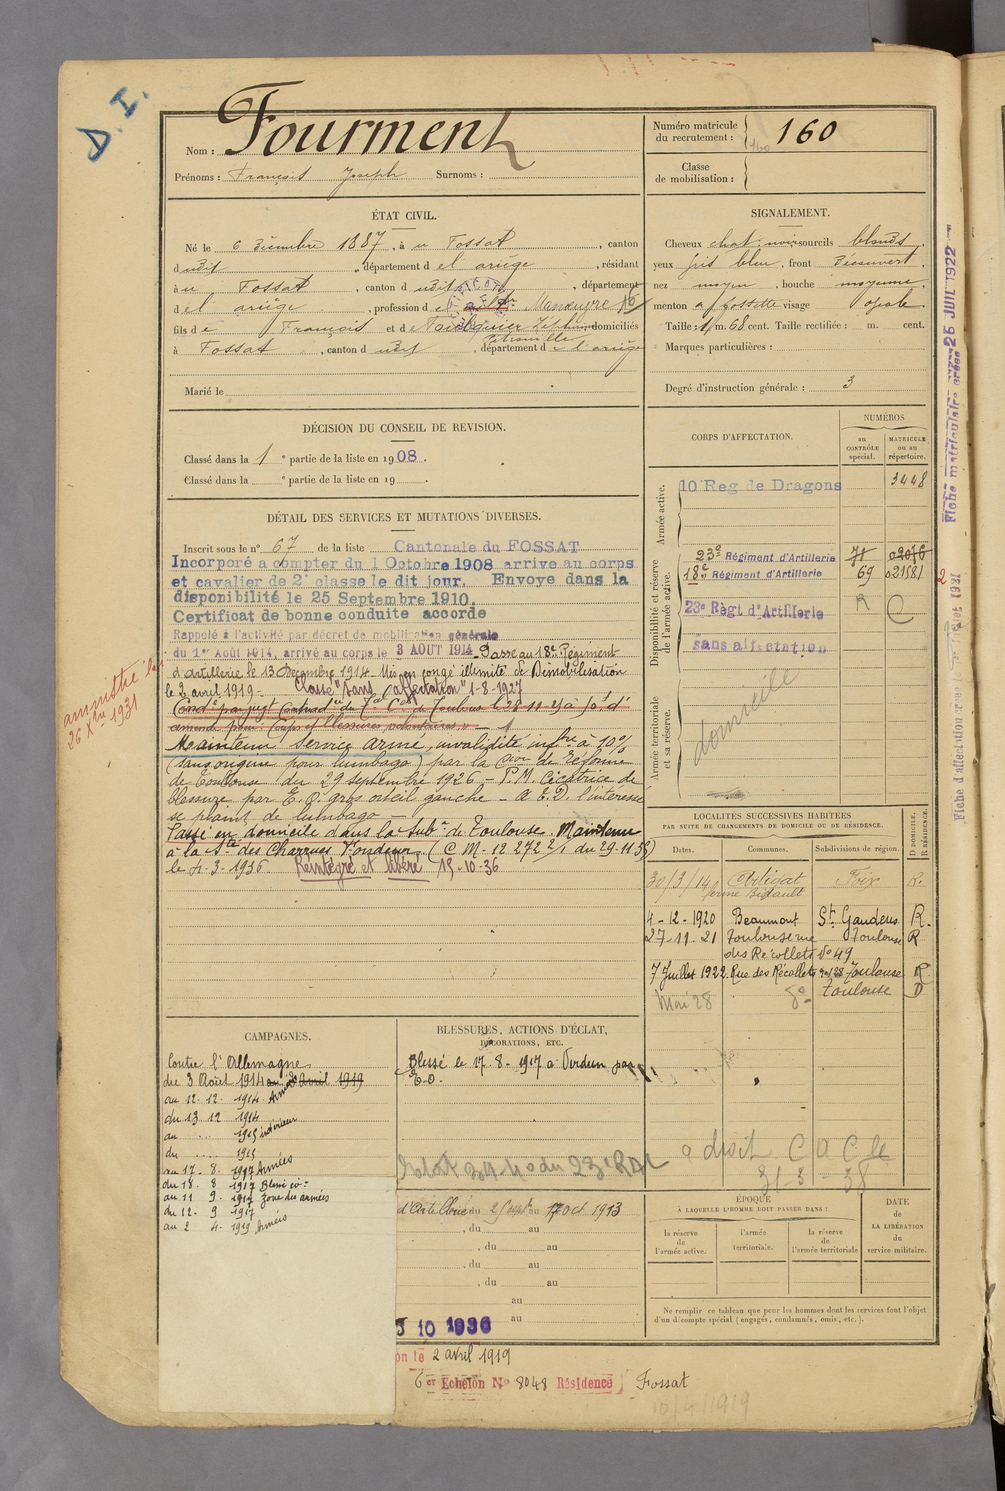 D. I.
Nom : Fourment
Prénoms : François Joseph Surnoms :
Numéro matricule du recrutement : 160
Classe de mobilisation :
ÉTAT CIVIL.
Né le 6 Décembre 1887, à u Fossat, canton
dudit, département d e l'ariège, résidant
à u Fossat, canton d udit, département
d el ariège, profession d Manœuvre
fils de François et de Zéphirine domiciliés
Pétronille
à Fossat, canton d udit, département de l'ariège
Marié le
SIGNALEMENT.
Cheveux chat. noir sourcils blonds
yeux gris bleu, front Découvert
nez moyen, bouche moyenne
menton à fossette visage ovale
Taille : 1 m. 68 cent. Taille rectifiée : m. cent.
Marques particulières :
Degré d'instruction générale : 3
DÉCISION DU CONSEIL DE REVISION.
Classé dans la 1e partie de la liste en 1908.
Classé dans la e partie de la liste en 19 .
DÉTAIL DES SERVICES ET MUTATIONS DIVERSES.
Inscrit sous le n° 67 de la liste Cantonale du FOSSAT
Incorporé a compter du 1 Octobre 1908 arrivé au corps
et cavalier de 2e classe le dit jour. Envoye dans la
disponibilité le 25 Septembre 1910.
Certificat de bonne conduite accorde
Rappelé à l'activité par décret de mobilisation générale
du 1er Août 1914, arrivé au corps le 3 AOUT 1914. Passe au 18e Régiment
d'artillerie le 13 Décembre 1914. Mis en congé illimité de Démobilisation
le 2 avril 1919. Classé "sans affectation" 1-8-1927
Condé par jugt Contradre du Tal Cel de Toulouse le 28-11-25 à 50f d'
amende pour "Coups et blessures volontaires"
Maintenu service armé, invalidité infre à 10%
(sans origine pour lumbago) par la Cion de réforme
de Toulouse du 29 septembre 1926 - P.M. Cicatrice de
blessure par E. O. gros orteil gauche - A E. D. l'intéressé
se plaint de lumbago -
Passé en domicile dans la Subon de Toulouse. Maintenu
à la Sté des Charrues Fondeur (C M- 12 272 2/1 du 29-11-35)
le 4-3-1936 Réintégré et libéré 15-10-36
amnistié
26 Xbre 1931
CORPS D'AFFECTATION.
NUMÉROS
au CONTRÔLE spécial.
MATRICULE ou au répertoire.
Armée active.
10 Reg de Dragons 3448
Disponibilité et réserve de l'armée active.
23e Régiment d'Artillerie 71 02076
18e Régiment d'Artillerie 69 021581
23e Règt d'Artillerie R C
sans affectation
Armée territoriale et sa réserve.
domicile
LOCALITÉS SUCCESSIVES HABITÉES
PAR SUITE DE CHANGEMENTS DE DOMICILE OU DE RÉSIDENCE.
Dates. Communes. Subdivisions de région. D DOMICILE, R RÉSIDENCE.
30/3/14 Artigat Foix R.
4-12-1920 Beaumont St Gaudens R.
27-11-21 Toulouse rue Toulouse R
des Récollets No 49
7 Juillet 1922 Rue des Récollets Toulouse R
Mai 28 do Toulouse D
CAMPAGNES.
Contre l'Allemagne
du 3 Août 1914 au 2 avril 1919
au 12. 12. 1914. Armées
du 13 12 1914
au 1915 intérieur
du 1915
au 17. 8. 1917 Armées
du 18. 8 1917 Blessé
au 11 9. 1917 Zone des armées
du 12. 9 1917
au 2 4. 1919 Armées
BLESSURES, ACTIONS D'ÉCLAT,
DÉCORATIONS, ETC.
Blessé le 17.8.-1917 à Verdun par
E.O.
a droit C a C le
31-3-38
d'Artillerie du 2 Sept au 17 oct 1913
, du au
, du au
, du au
, du au
au
au
10 1936
ÉPOQUE
À LAQUELLE L'HOMME DOIT PASSER DANS :
la réserve de l'armée active.
l'armée territoriale.
la réserve de l'armée territoriale
DATE de LA LIBÉRATION du service militaire.
Ne remplir ce tableau que pour les hommes dont les services font l'objet
d'un décompte spécial (engagés, condamnés, omis, etc.).
on le 2 avril 1919
6 er Echelon No 8048 Résidence) Fossat
15/4/1919
Fiche matriculaire 25 JUIL 1922
Fiche d'affectation